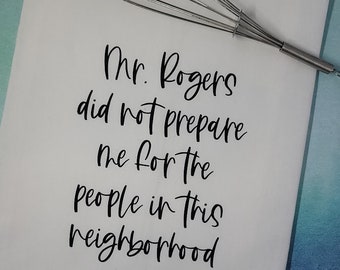 Mr. Rogers
did not prepare
me for the
people in this
neighborhood